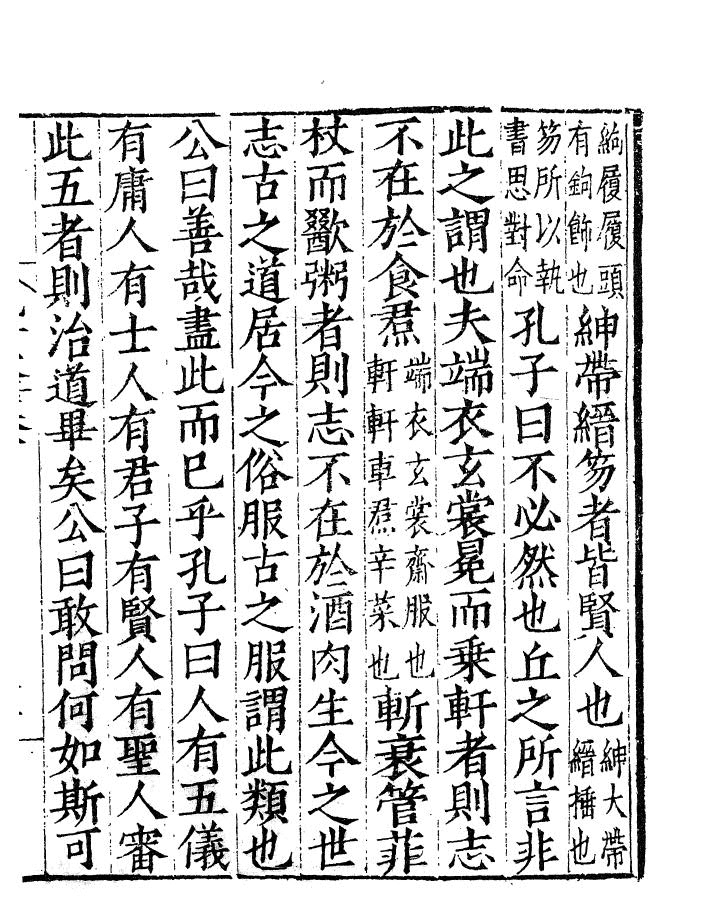 絇履履頭有鉤飾也紳帶縉笏者皆賢人也紳大帶縉揷也
笏所以執書思對命孔子曰不必然也丘之所言非
此之謂也夫端衣玄裳冕而乗軒者則志
不在於食焄端衣玄裳齋服也軒軒車焄辛菜也斬衰管菲
杖而歠粥者則志不在於酒肉生今之世
志古之道居今之俗服古之服謂此類也
公曰善哉盡此而巳乎孔子曰人有五儀
有庸人有士人有君子有賢人有聖人審
此五者則治道畢矣公曰敢問何如斯可